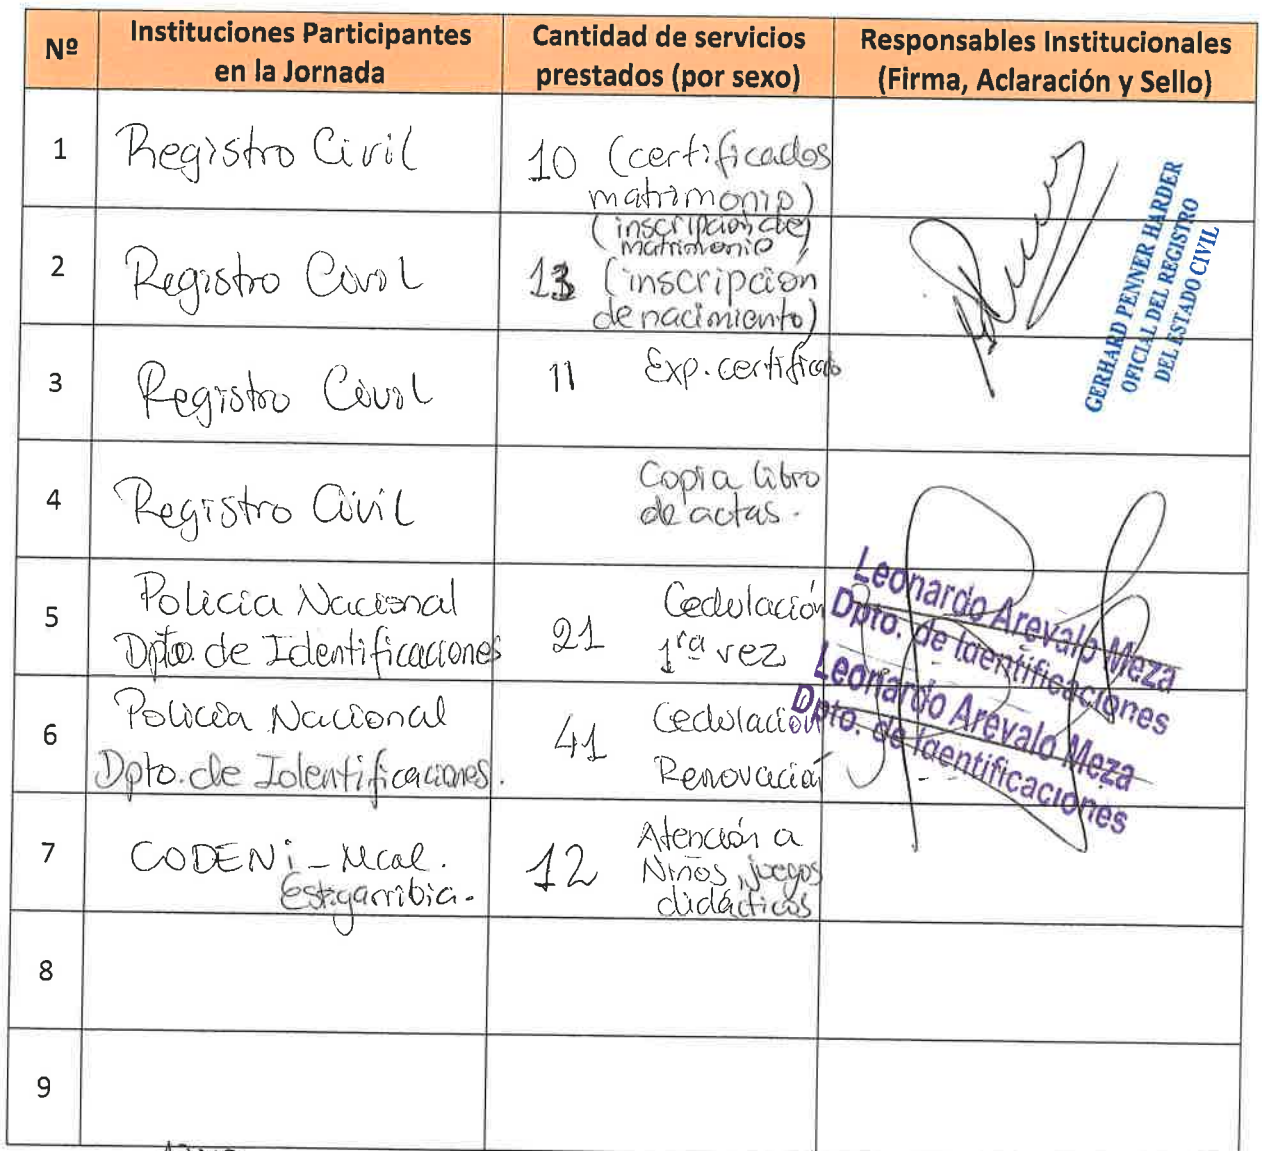 Nº
Instituciones Participantes
en la Jornada
Cantidad de servicios
prestados (por sexo)
Responsables Institucionales
(Firma, Aclaración y Sello)
1
Registro Civil
10 (certificados
matrimonio)
2
Registro Civil
(inscripcion de)
matrimonio
13 (inscripción
de nacimiento)
GERHARD PENNER HARDER
OFICIAL DEL REGISTRO
DEL ESTADO CIVIL
3
Registro Civil
11 Exp. certificado
4
Registro Civil
Copia libro
de actas.
5
Policia Nacional
Dpto. de Identificaciones
21 Cedulación
1ra vez
Leonardo Arevalo Meza
Dpto. de Identificaciones
6
Policia Nacional
Dpto. de Identificaciones.
41 Cedulación
Renovación
Leonardo Arevalo Meza
Dpto. de Identificaciones
7
CODENi - Mcal.
Estigarribia.
12 Atención a
Niños, juegos
didácticos
8
9